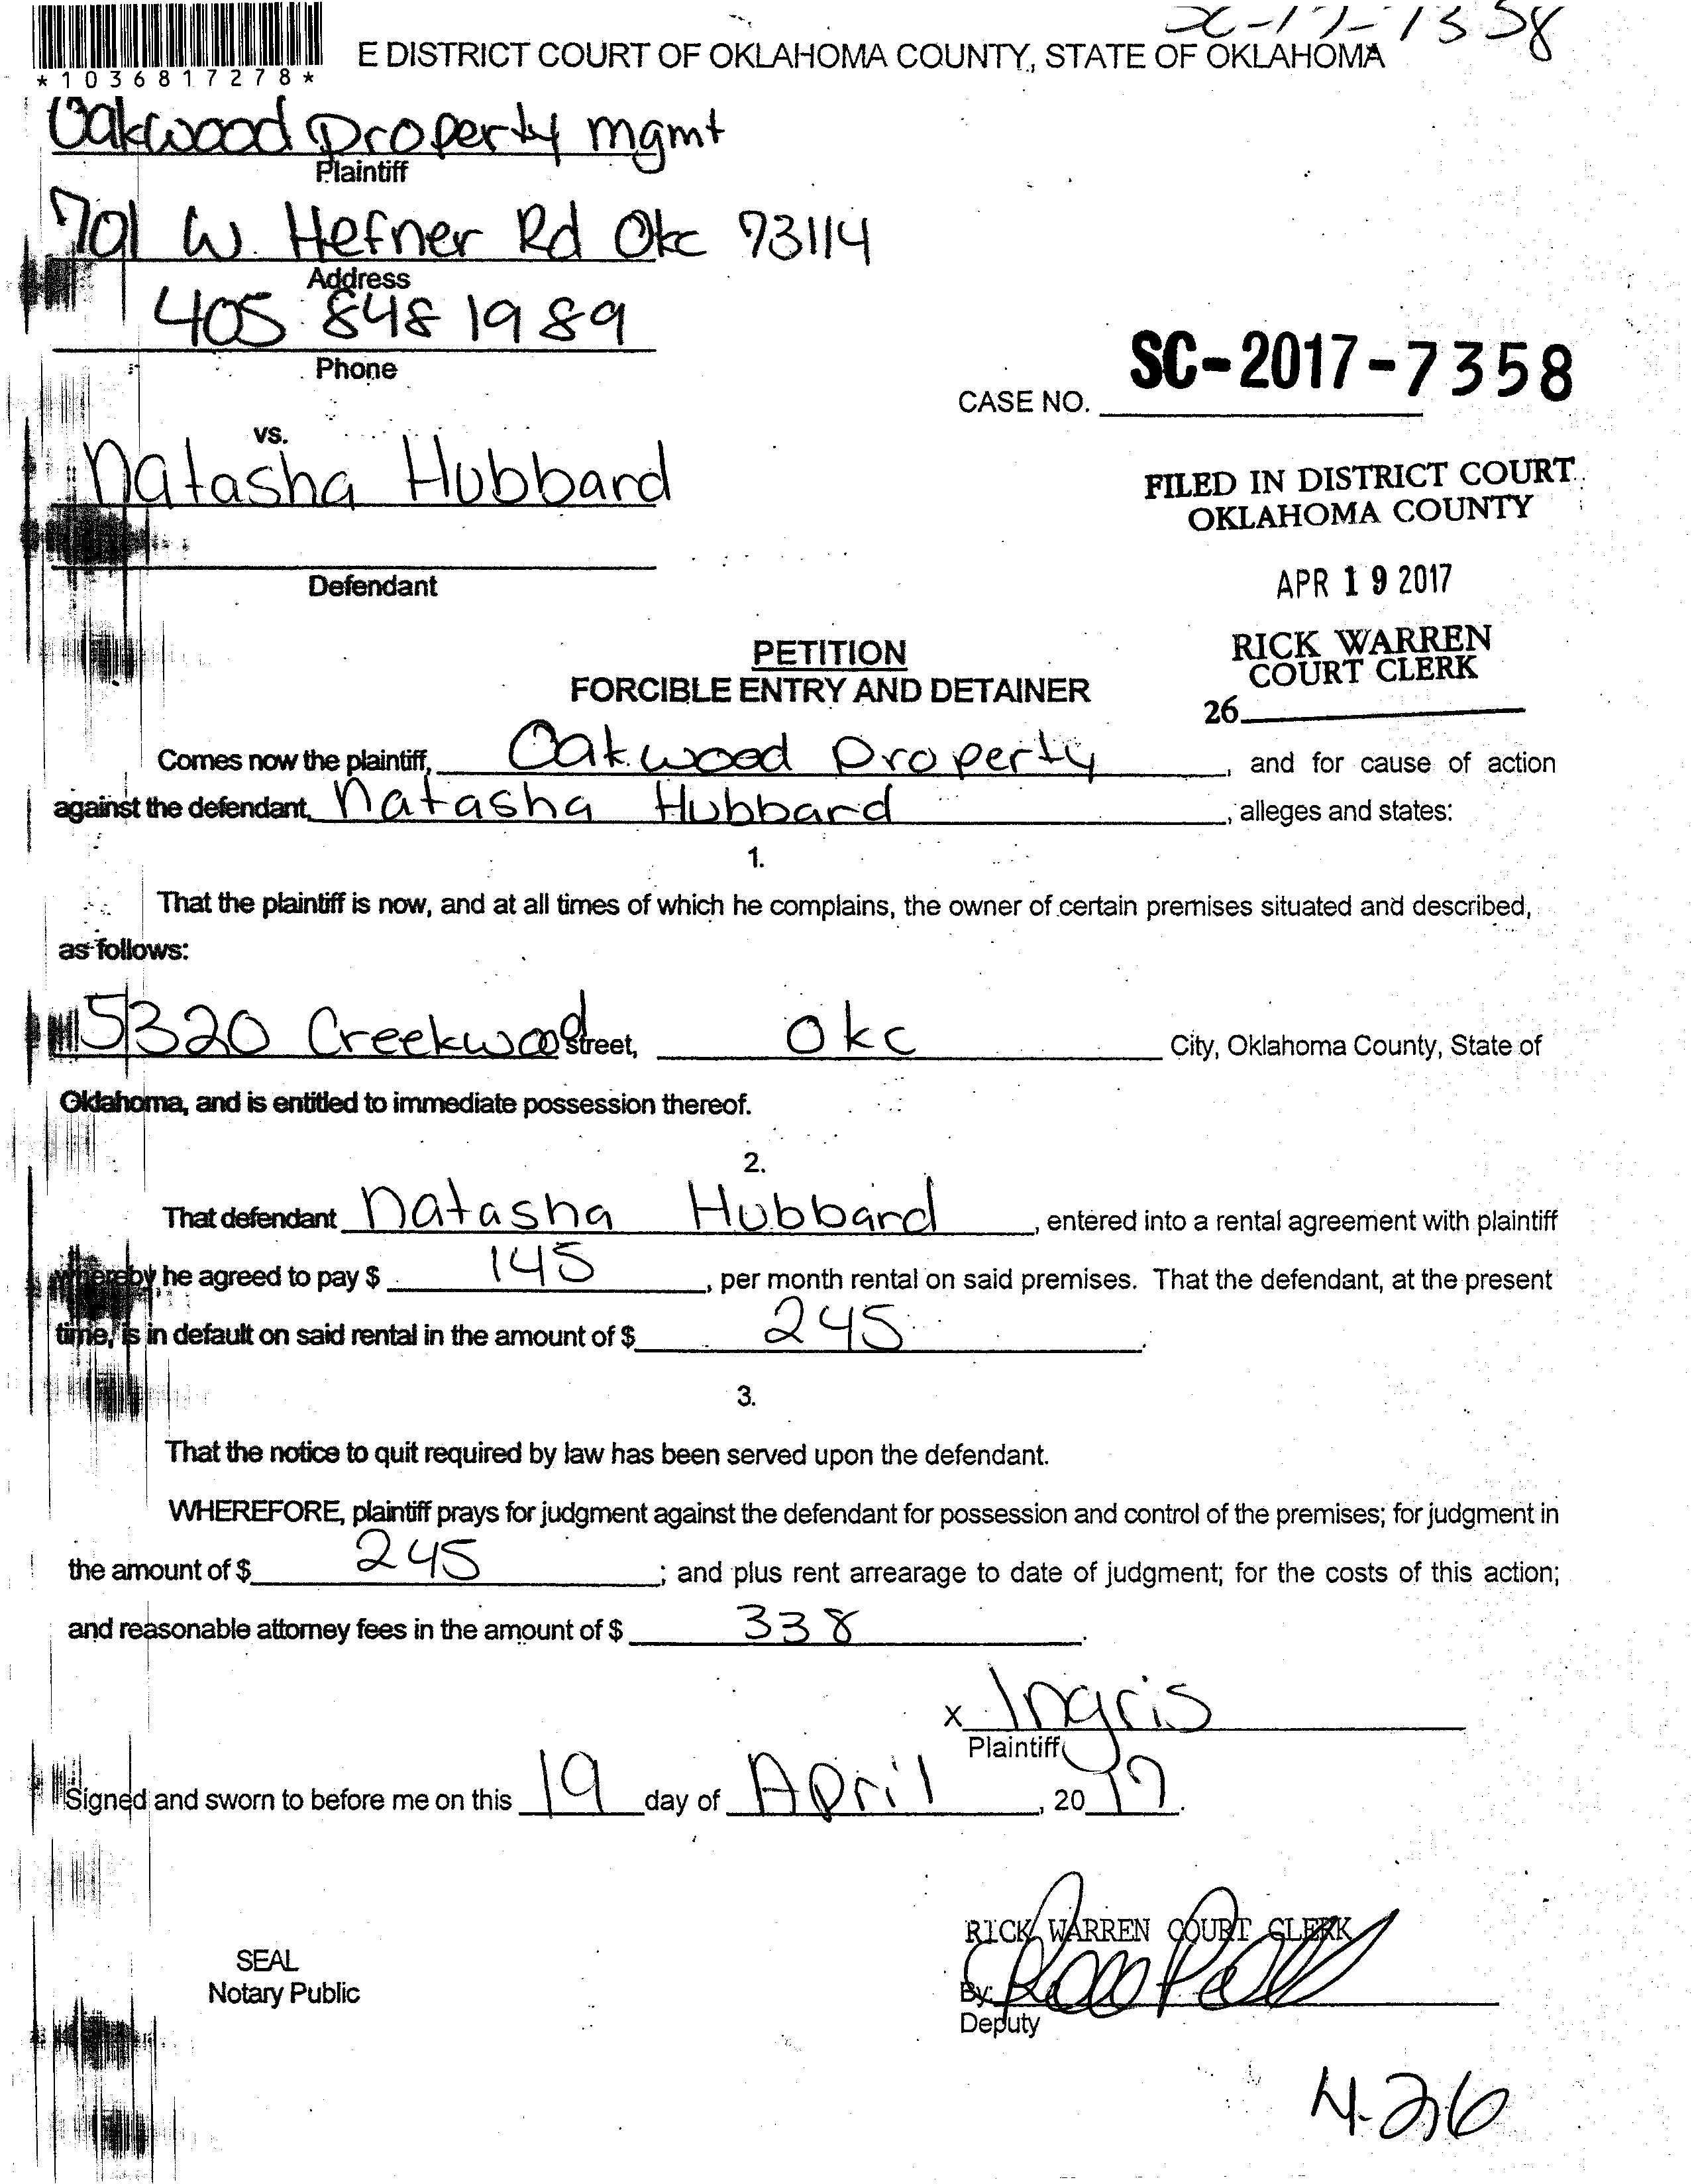 SC-17-7358
*1036817278*
E DISTRICT COURT OF OKLAHOMA COUNTY, STATE OF OKLAHOMA
Oakwood Property mgmt
Plaintiff
701 W. Hefner Rd Okc 73114
Address
405 848 1989
Phone
SC-2017-7358
CASE NO.
vs.
Natasha Hubbard
FILED IN DISTRICT COURT
OKLAHOMA COUNTY
Defendant
APR 19 2017
RICK WARREN
COURT CLERK
26
PETITION
FORCIBLE ENTRY AND DETAINER
Comes now the plaintiff, Oakwood Property, and for cause of action
against the defendant, Natasha Hubbard, alleges and states:
1.
That the plaintiff is now, and at all times of which he complains, the owner of certain premises situated and described,
as follows:
5320 Creekwood Street, Okc City, Oklahoma County, State of
Oklahoma, and is entitled to immediate possession thereof.
2.
That defendant Natasha Hubbard, entered into a rental agreement with plaintiff
whereby he agreed to pay $ 145, per month rental on said premises. That the defendant, at the present
time, is in default on said rental in the amount of $ 245.
3.
That the notice to quit required by law has been served upon the defendant.
WHEREFORE, plaintiff prays for judgment against the defendant for possession and control of the premises; for judgment in
the amount of $ 245; and plus rent arrearage to date of judgment; for the costs of this action;
and reasonable attorney fees in the amount of $ 338.
X Ingris
Plaintiff
Signed and sworn to before me on this 19 day of April, 2017.
RICK WARREN COURT CLERK
SEAL
Notary Public
By:
Deputy
4-26